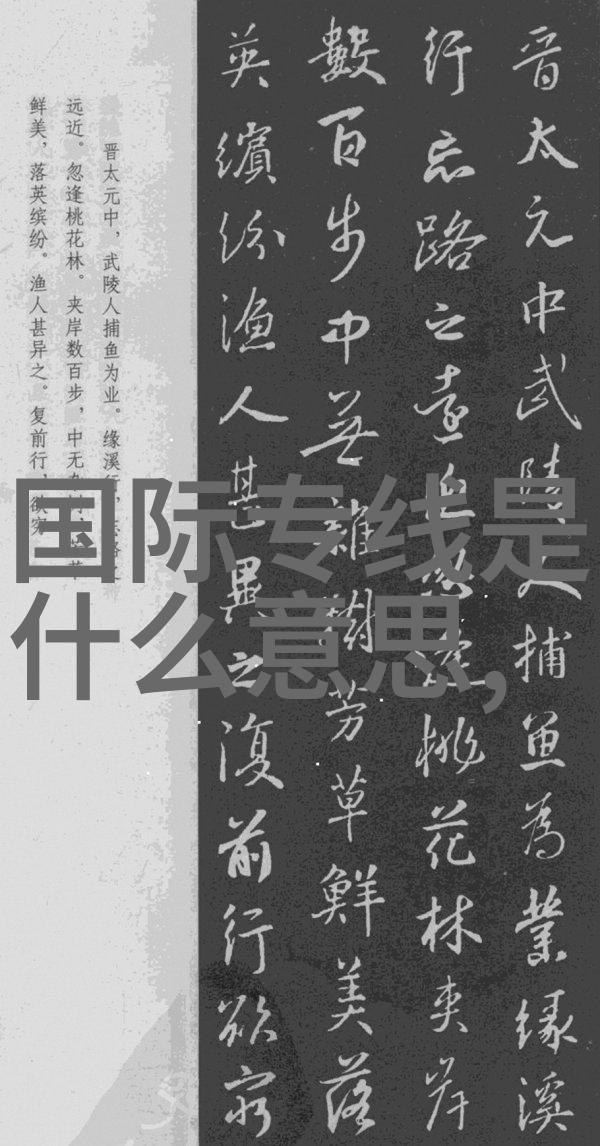 晋太元中武陵人捕鱼为业缘溪
行忘路之远近忽逢桃花林夹岸
數百步中無雜樹芳草鮮美落
英繽紛漁人甚異之復前行欲窮
晋太元中，武陵人捕鱼为业。缘溪行，忘路之
远近。忽逢桃花林。夹岸数百步，中无杂树，芳草
鲜美，落英缤纷。渔人甚异之。复前行，欲穷
国际专线是
什么意思,